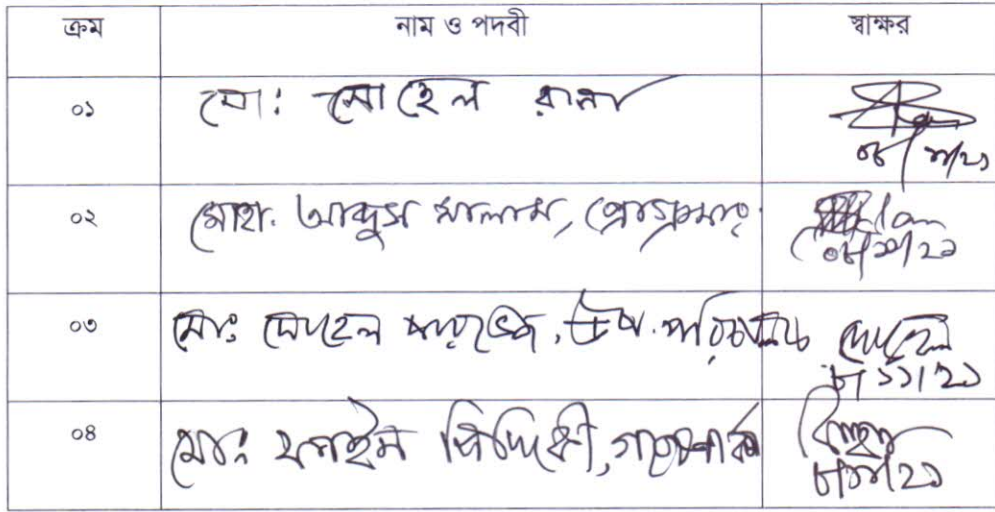 ক্রম নাম ও পদবী স্বাক্ষর
০১ মো: সোহেল রানা
০৮/১১/২১
০২ মোহা. আব্দুস সালাম, প্রোগ্রামার
০৮/১১/২১
০৩ মোঃ সোহেল পারভেজ, উপ-পরিচালক সোহেল
৮/১১/২১
০৪ মোঃ ফাহিম সিদ্দিকী,
৮/১১/২১